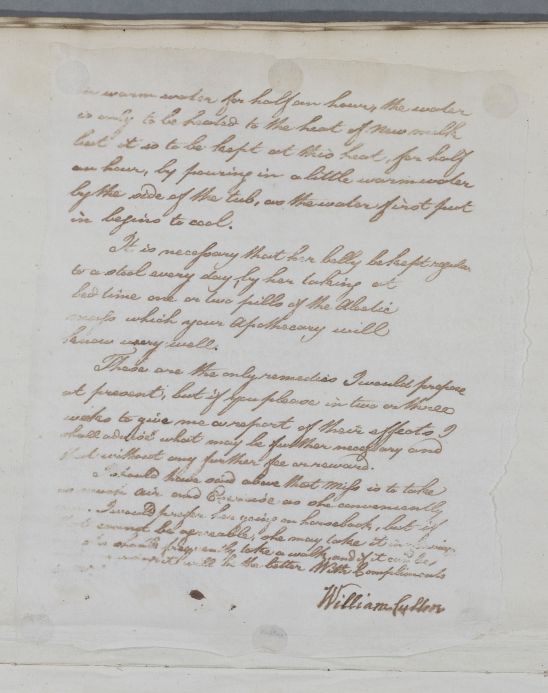 in warm water for half an hour, the water
is only to be heated to the heat of New milk
but it is to be kept at this heat, for half
an hour, by pouring in a little warm water
by the side of the tub, as the water first put
in begins to cool.
It is necessary that her belly be kept regular
to a stool every day, by her taking at
bed time one or two pills of the Aloetic
mass which your Apothecary will
know very well.
These are the only remedies I would propose
at present, but if you please in two or three
weeks to give me a report of their effects, I
shall advise what may be further necessary and
that without any further fee or reward.
I should have said above that Miss is to take
as much air and Exercise as she conveniently
I would prefer her going on horseback, but if
cannot be agreeable, she may take it in
she should frequently take a walk, and if it can be
will be the better With Compliments
William Cullen